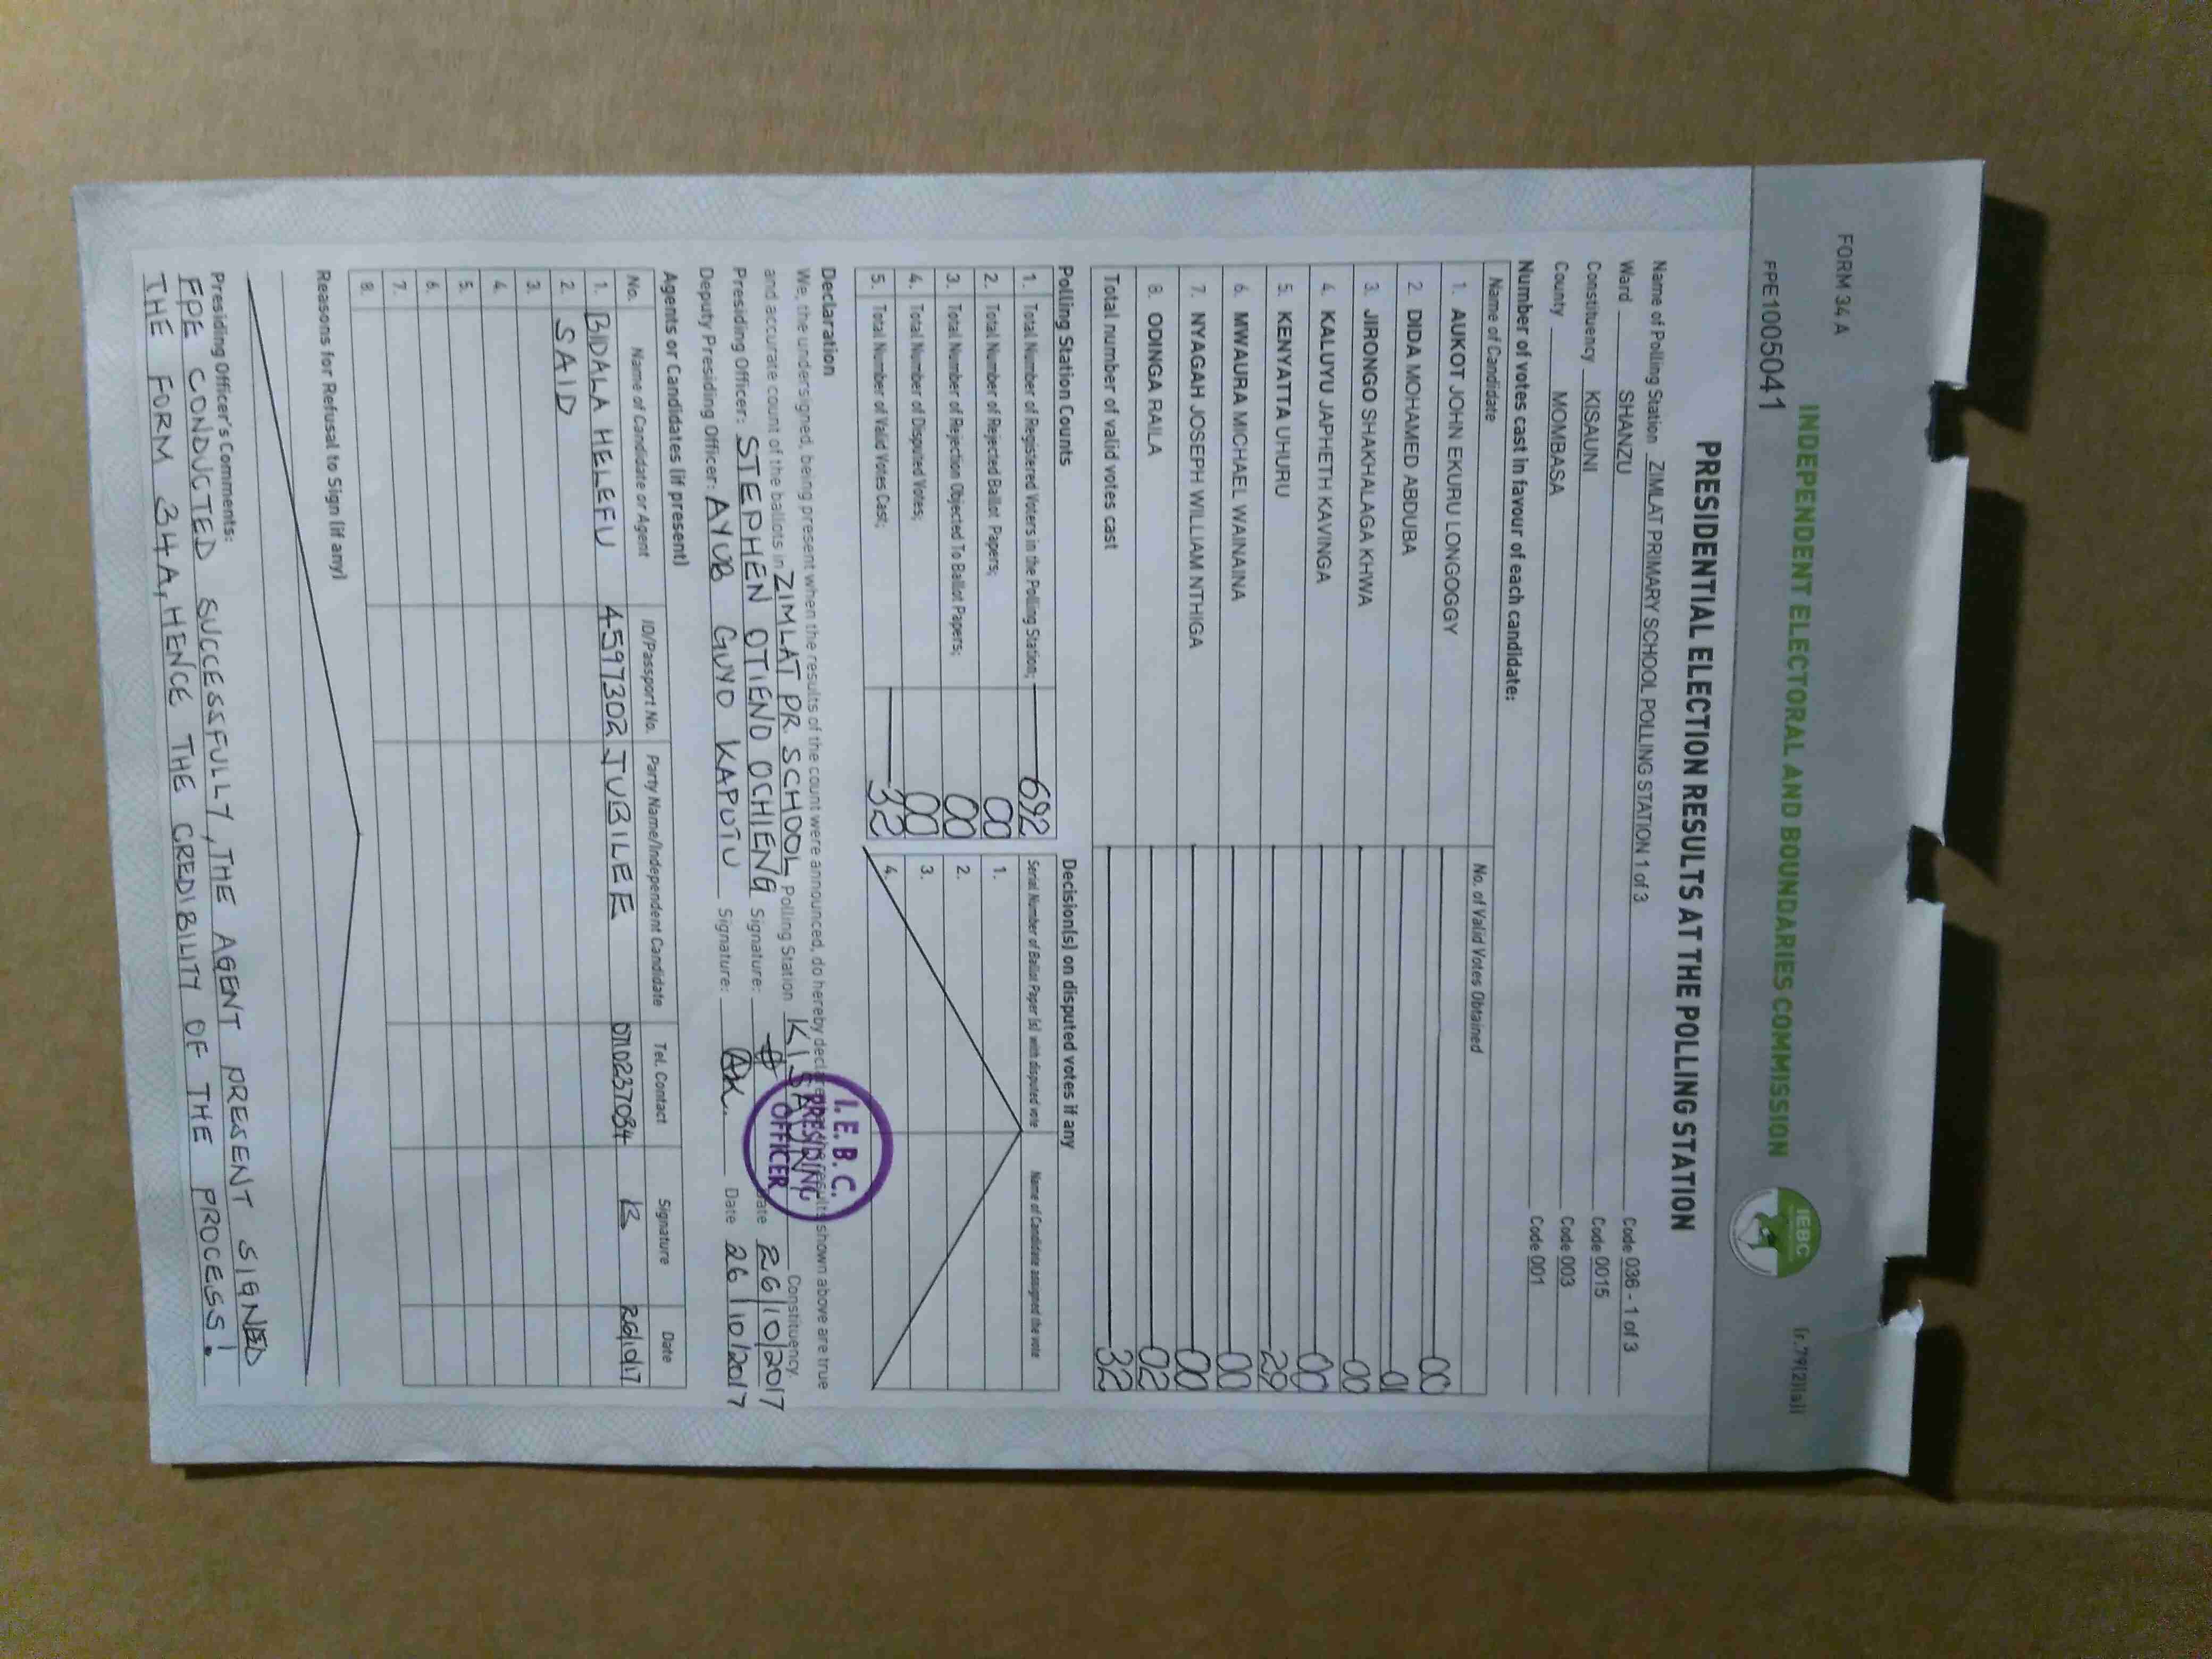 FORM 34 A
(r.79(2)(a))
INDEPENDENT ELECTORAL AND BOUNDARIES COMMISSION
IEBC
FPE1005041
PRESIDENTIAL ELECTION RESULTS AT THE POLLING STATION
Name of Polling Station ZIMLAT PRIMARY SCHOOL POLLING STATION 1 of 3 Code 036 - 1 of 3
Ward SHANZU Code 0015
Constituency KISAUNI Code 003
County MOMBASA Code 001
Number of votes cast in favour of each candidate:
Name of Candidate No. of Valid Votes Obtained
1. AUKOT JOHN EKURU LONGOGGY 00
2. DIDA MOHAMED ABDUBA 01
3. JIRONGO SHAKHALAGA KHWA 00
4. KALUYU JAPHETH KAVINGA 00
5. KENYATTA UHURU 29
6. MWAURA MICHAEL WAINAINA 00
7. NYAGAH JOSEPH WILLIAM NTHIGA 00
8. ODINGA RAILA 02
Total number of valid votes cast 32
Polling Station Counts
1. Total Number of Registered Voters in the Polling Station; 692
2. Total Number of Rejected Ballot Papers; 00
3. Total Number of Rejection Objected To Ballot Papers; 00
4. Total Number of Disputed Votes; 00
5. Total Number of Valid Votes Cast; 32
Decision(s) on disputed votes if any
Serial Number of Ballot Paper (s) with disputed vote Name of Candidate assigned the vote
1.
2.
3.
4.
Declaration
We, the undersigned, being present when the results of the count were announced, do hereby declare that the results shown above are true
and accurate count of the ballots in ZIMLAT PR SCHOOL Polling Station KISAUNI Constituency.
Presiding Officer: STEPHEN OTIENO OCHIENG Signature: Date 26/10/2017
Deputy Presiding Officer: AYUB GUYO KAPUTU Signature: AK. Date 26/10/2017
I.E.B.C.
PRESIDING
OFFICER
Agents or Candidates (if present)
No. Name of Candidate or Agent ID/Passport No. Party Name/Independent Candidate Tel. Contact Signature Date
1. BIDALA HELEFU 4597302 JUBILEE 0710237084 26/10/17
2. SAID
3.
4.
5.
6.
7.
8.
Reasons for Refusal to Sign (if any)
Presiding Officer's Comments:
FPE CONDUCTED SUCCESSFULLY, THE AGENT PRESENT SIGNED
THE FORM 34A, HENCE THE CREDIBILITY OF THE PROCESS!